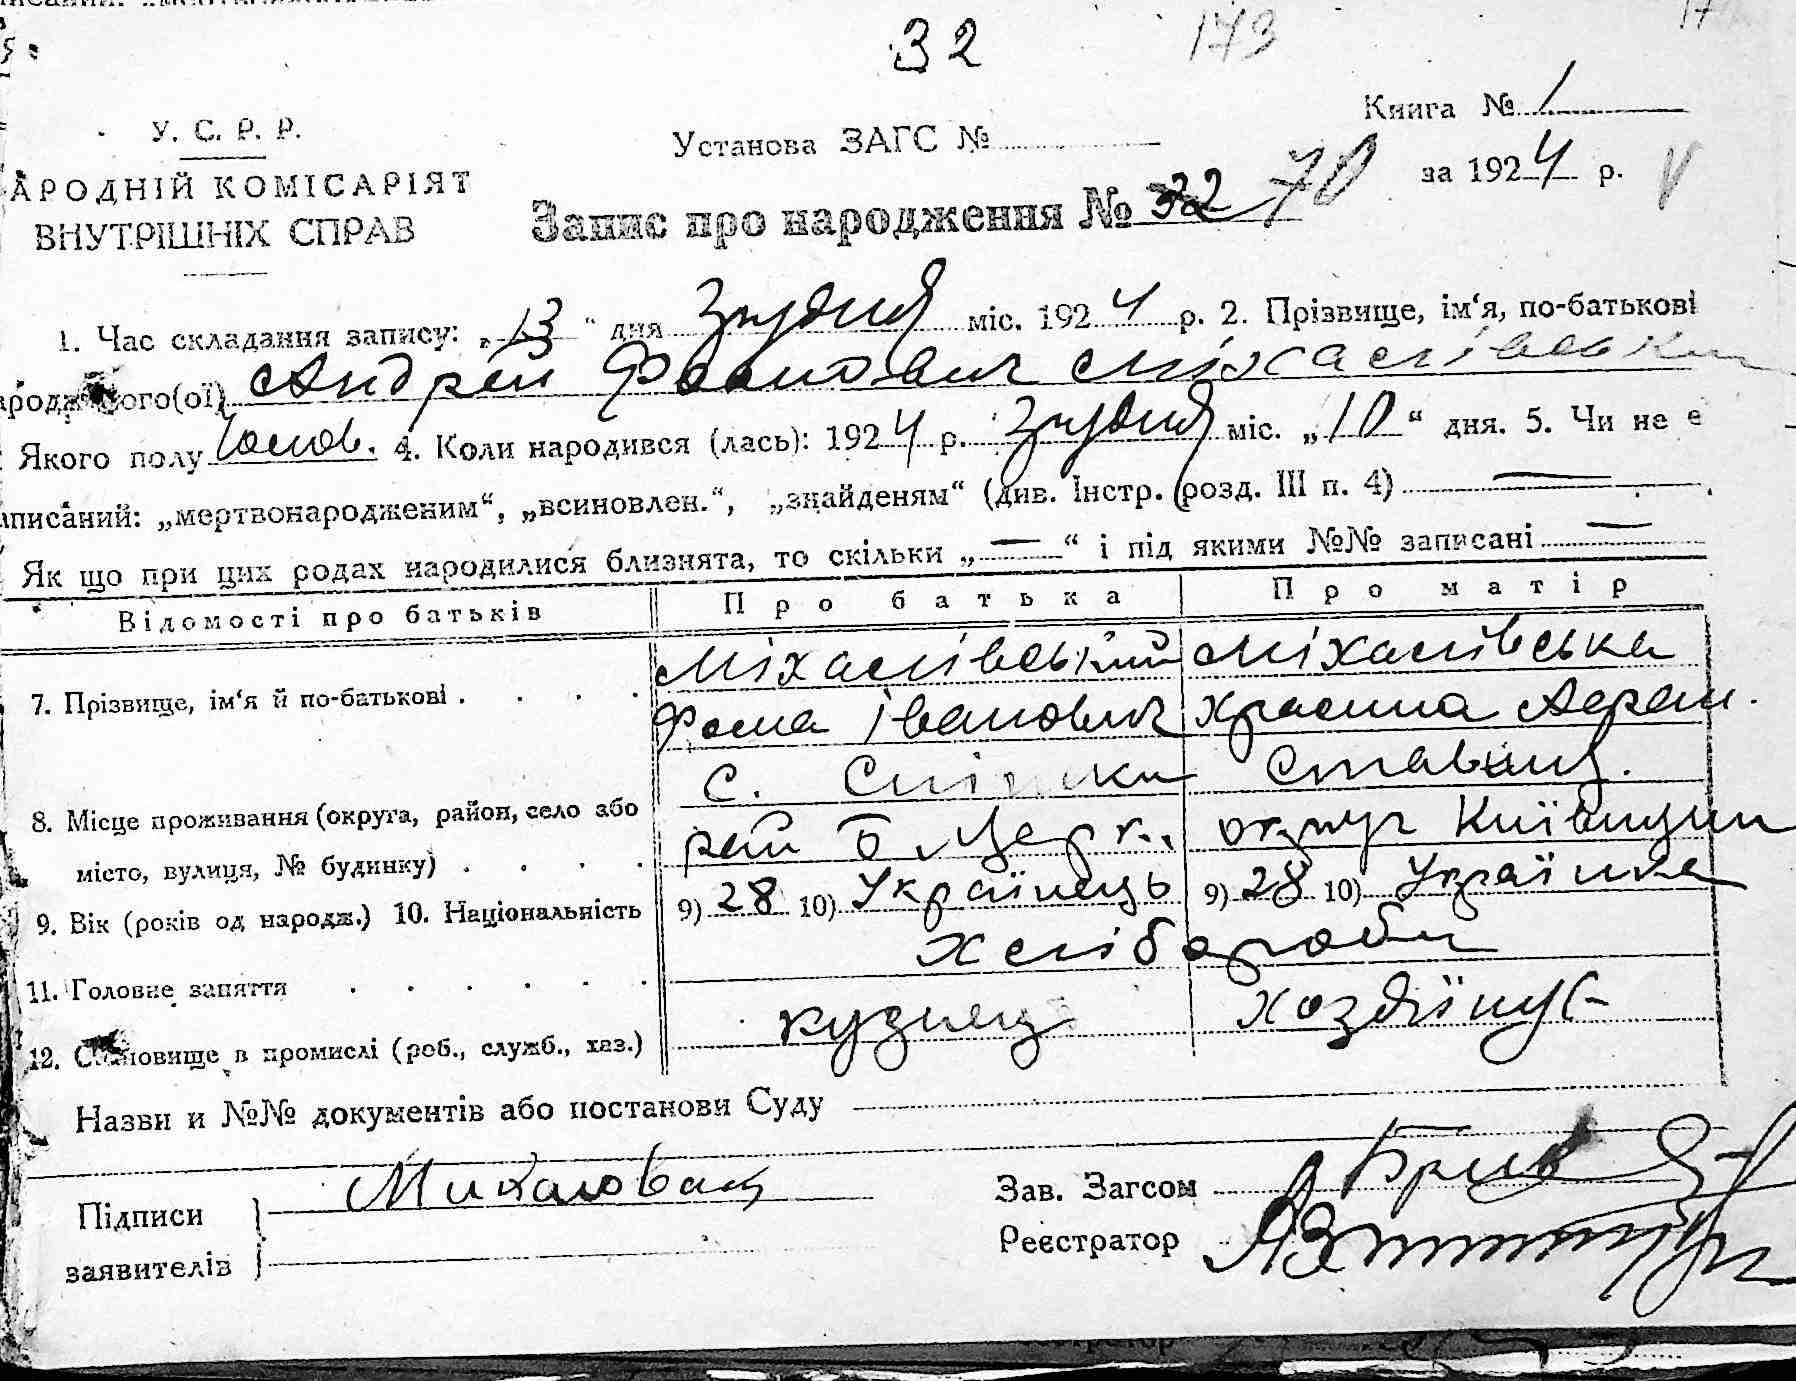 32 173
Книга № 1
У. С. Р. Р.
Установа ЗАГС №
за 1924 р. V
АРОДНІЙ КОМІСАРІЯТ
ВНУТРІШНІХ СПРАВ
Запис про народження № 32 70
1. Час складання запису: „13“ дня Грудня міс. 1924 р. 2. Прізвище, ім‘я, по-батькові
народженого(ої) Андрей Фомович Міхалівський
Якого полу Чолов. 4. Коли народився (лась): 1924 р. Грудня міс. „10“ дня. 5. Чи не є
аписаний: „мертвонародженим“, „всиновлен.“, „знайденям“ (див. Інстр. розд. III п. 4) —
Як що при цих родах народилися близнята, то скільки „—“ і під якими №№ записані —
Відомості про батьків Про батька Про матір
7. Прізвище, ім‘я й по-батькові . . . . Міхалівський Міхалівська
Фома Іванович
С. Ставищ.
8. Місце проживання (округа, район, село або
рай Б Церк. округ Київщини
місто, вулиця, № будинку) . . . .
9. Вік (років од народж.) 10. Національність 9) 28 10) Українець 9) 28 10) Українка
Хлібороби
11. Головне заняття . . . . . .
кузнец хозяїнує
12. Становище в промислі (роб., служб., хаз.)
Назви и №№ документів або постанови Суду
Підписи
заявителів
Зав. Загсом
Реєстратор